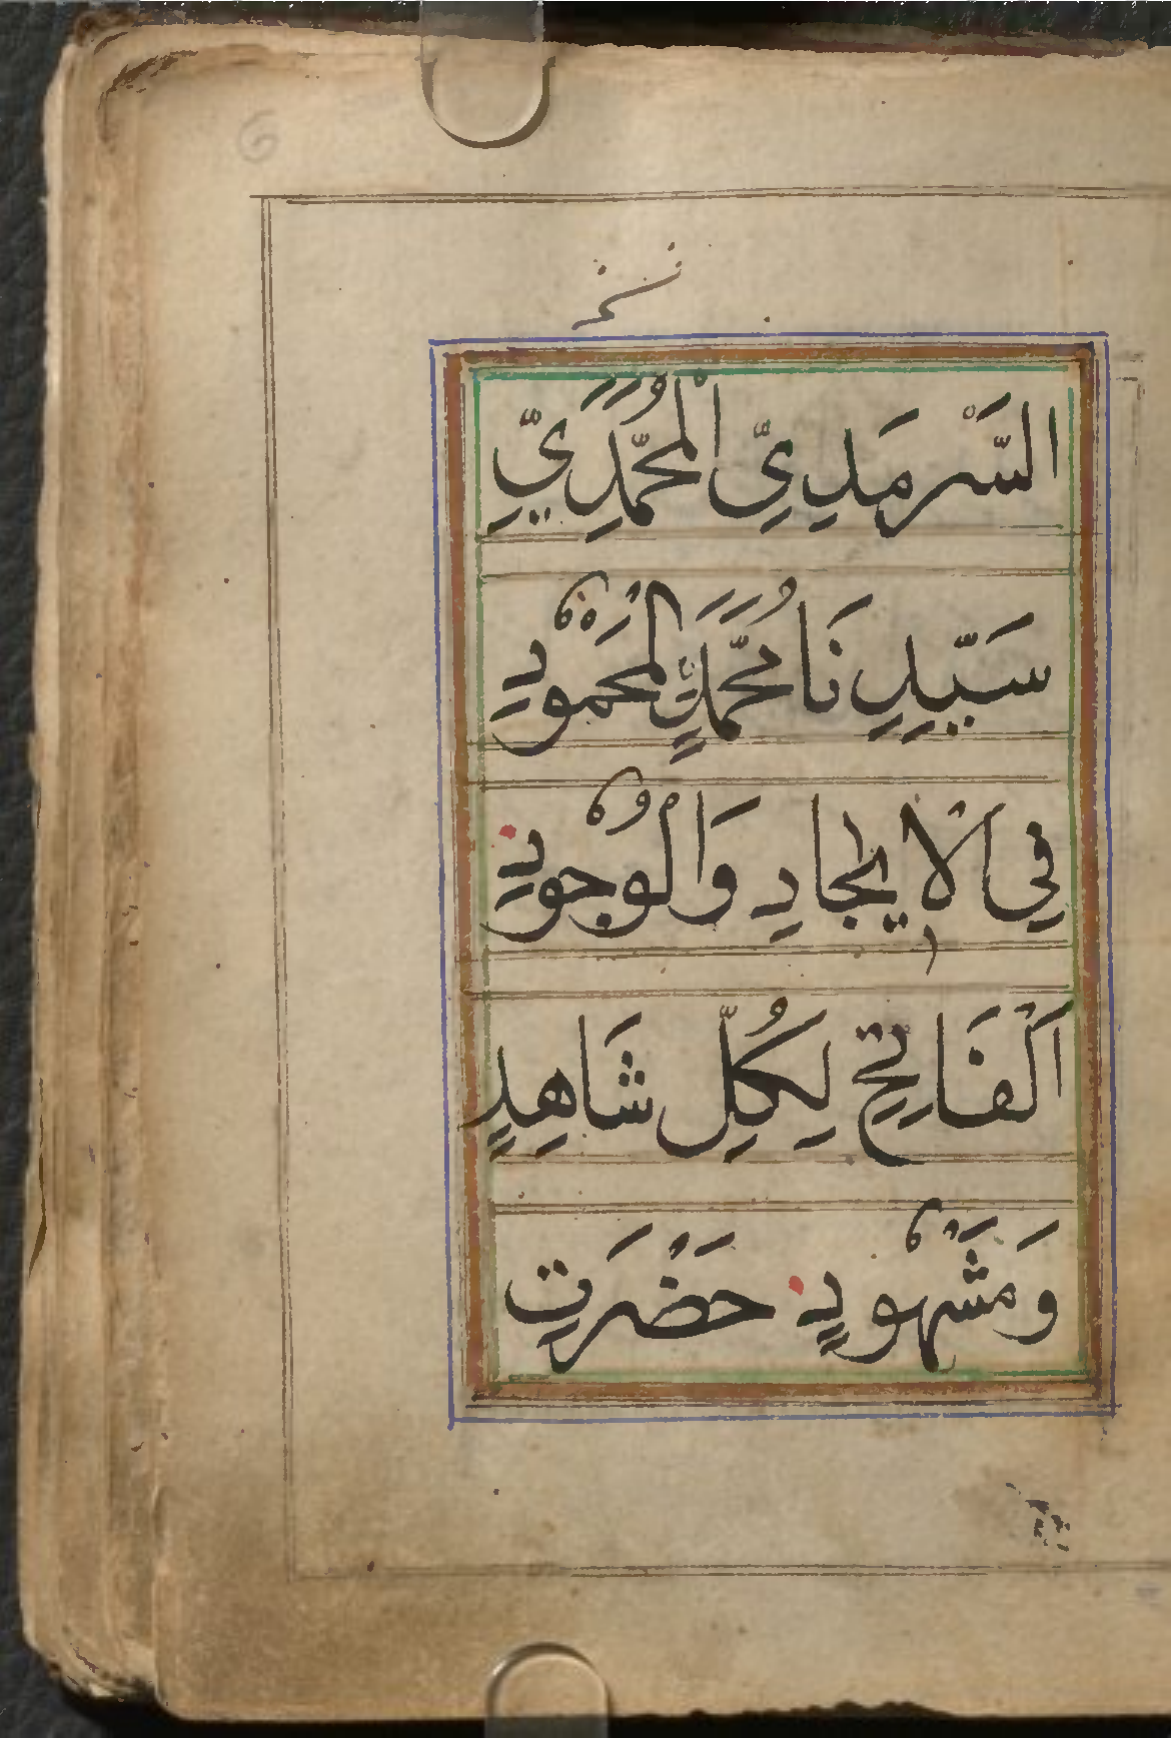 السَّرْمَدِيِّ الْمُحَمَّدِيِّ
سَيِّدِنَا مُحَمَّدٍ الْمَحْمُودِ
فِي الْاِيجَادِ وَالْوُجُودِ
اَلْفَاتِحِ لِكُلِّ شَاهِدٍ
وَمَشْهُودٍ حَضْرَتِ